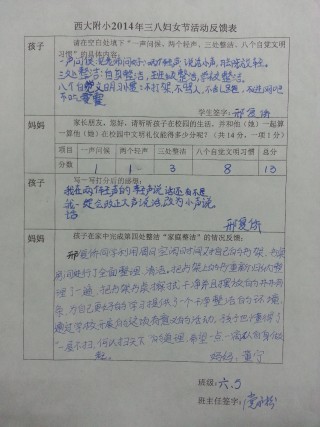 西大附小2014年三八妇女节活动反馈表
孩子
请在空白处填下“一声问候、两个轻声、三处整洁、八个自觉文明
习惯”的具体内容：
一声问候：见老师问好；两个轻声：说话小声，走路放轻。
三处整洁：自身整洁，班级整洁，学校整洁。
八个自觉文明习惯：不打架，不骂人，不乱
学生签字：邢夏侨
妈妈
家长朋友，您好，请听听孩子在校园的生活，并和他（她）一起算
一算他（她）在校园中文明礼仪能得多少分呢？（共14分，一项1分）
项目 一声问候 两个轻声 三处整洁 八个自觉文明习惯 总分
分数 1 1 3 8 13
孩子
写一写打分后的感想：
我在两个轻声的轻声说话还有不足
我一定会改正大声说话，改为小声说
话
邢夏侨
妈妈
孩子在家中完成第四处整洁“家庭整洁”的情况反馈：
邢夏侨同学利用周日空闲时间对自己的书架、
房间进行了全面整理、清洁。把书架上的书重新归
理了一遍，把书架擦拭干净并且摆放的井井有
条，为自己更好的学习提供了一个干净整洁的环境。
通过学校开展的这项有意义的活动，孩子也懂得了
“一屋不扫，何以扫天下”的道理，希望一点一滴从自身做
起。
妈妈：董宁
班级：六.5
班主任签字：